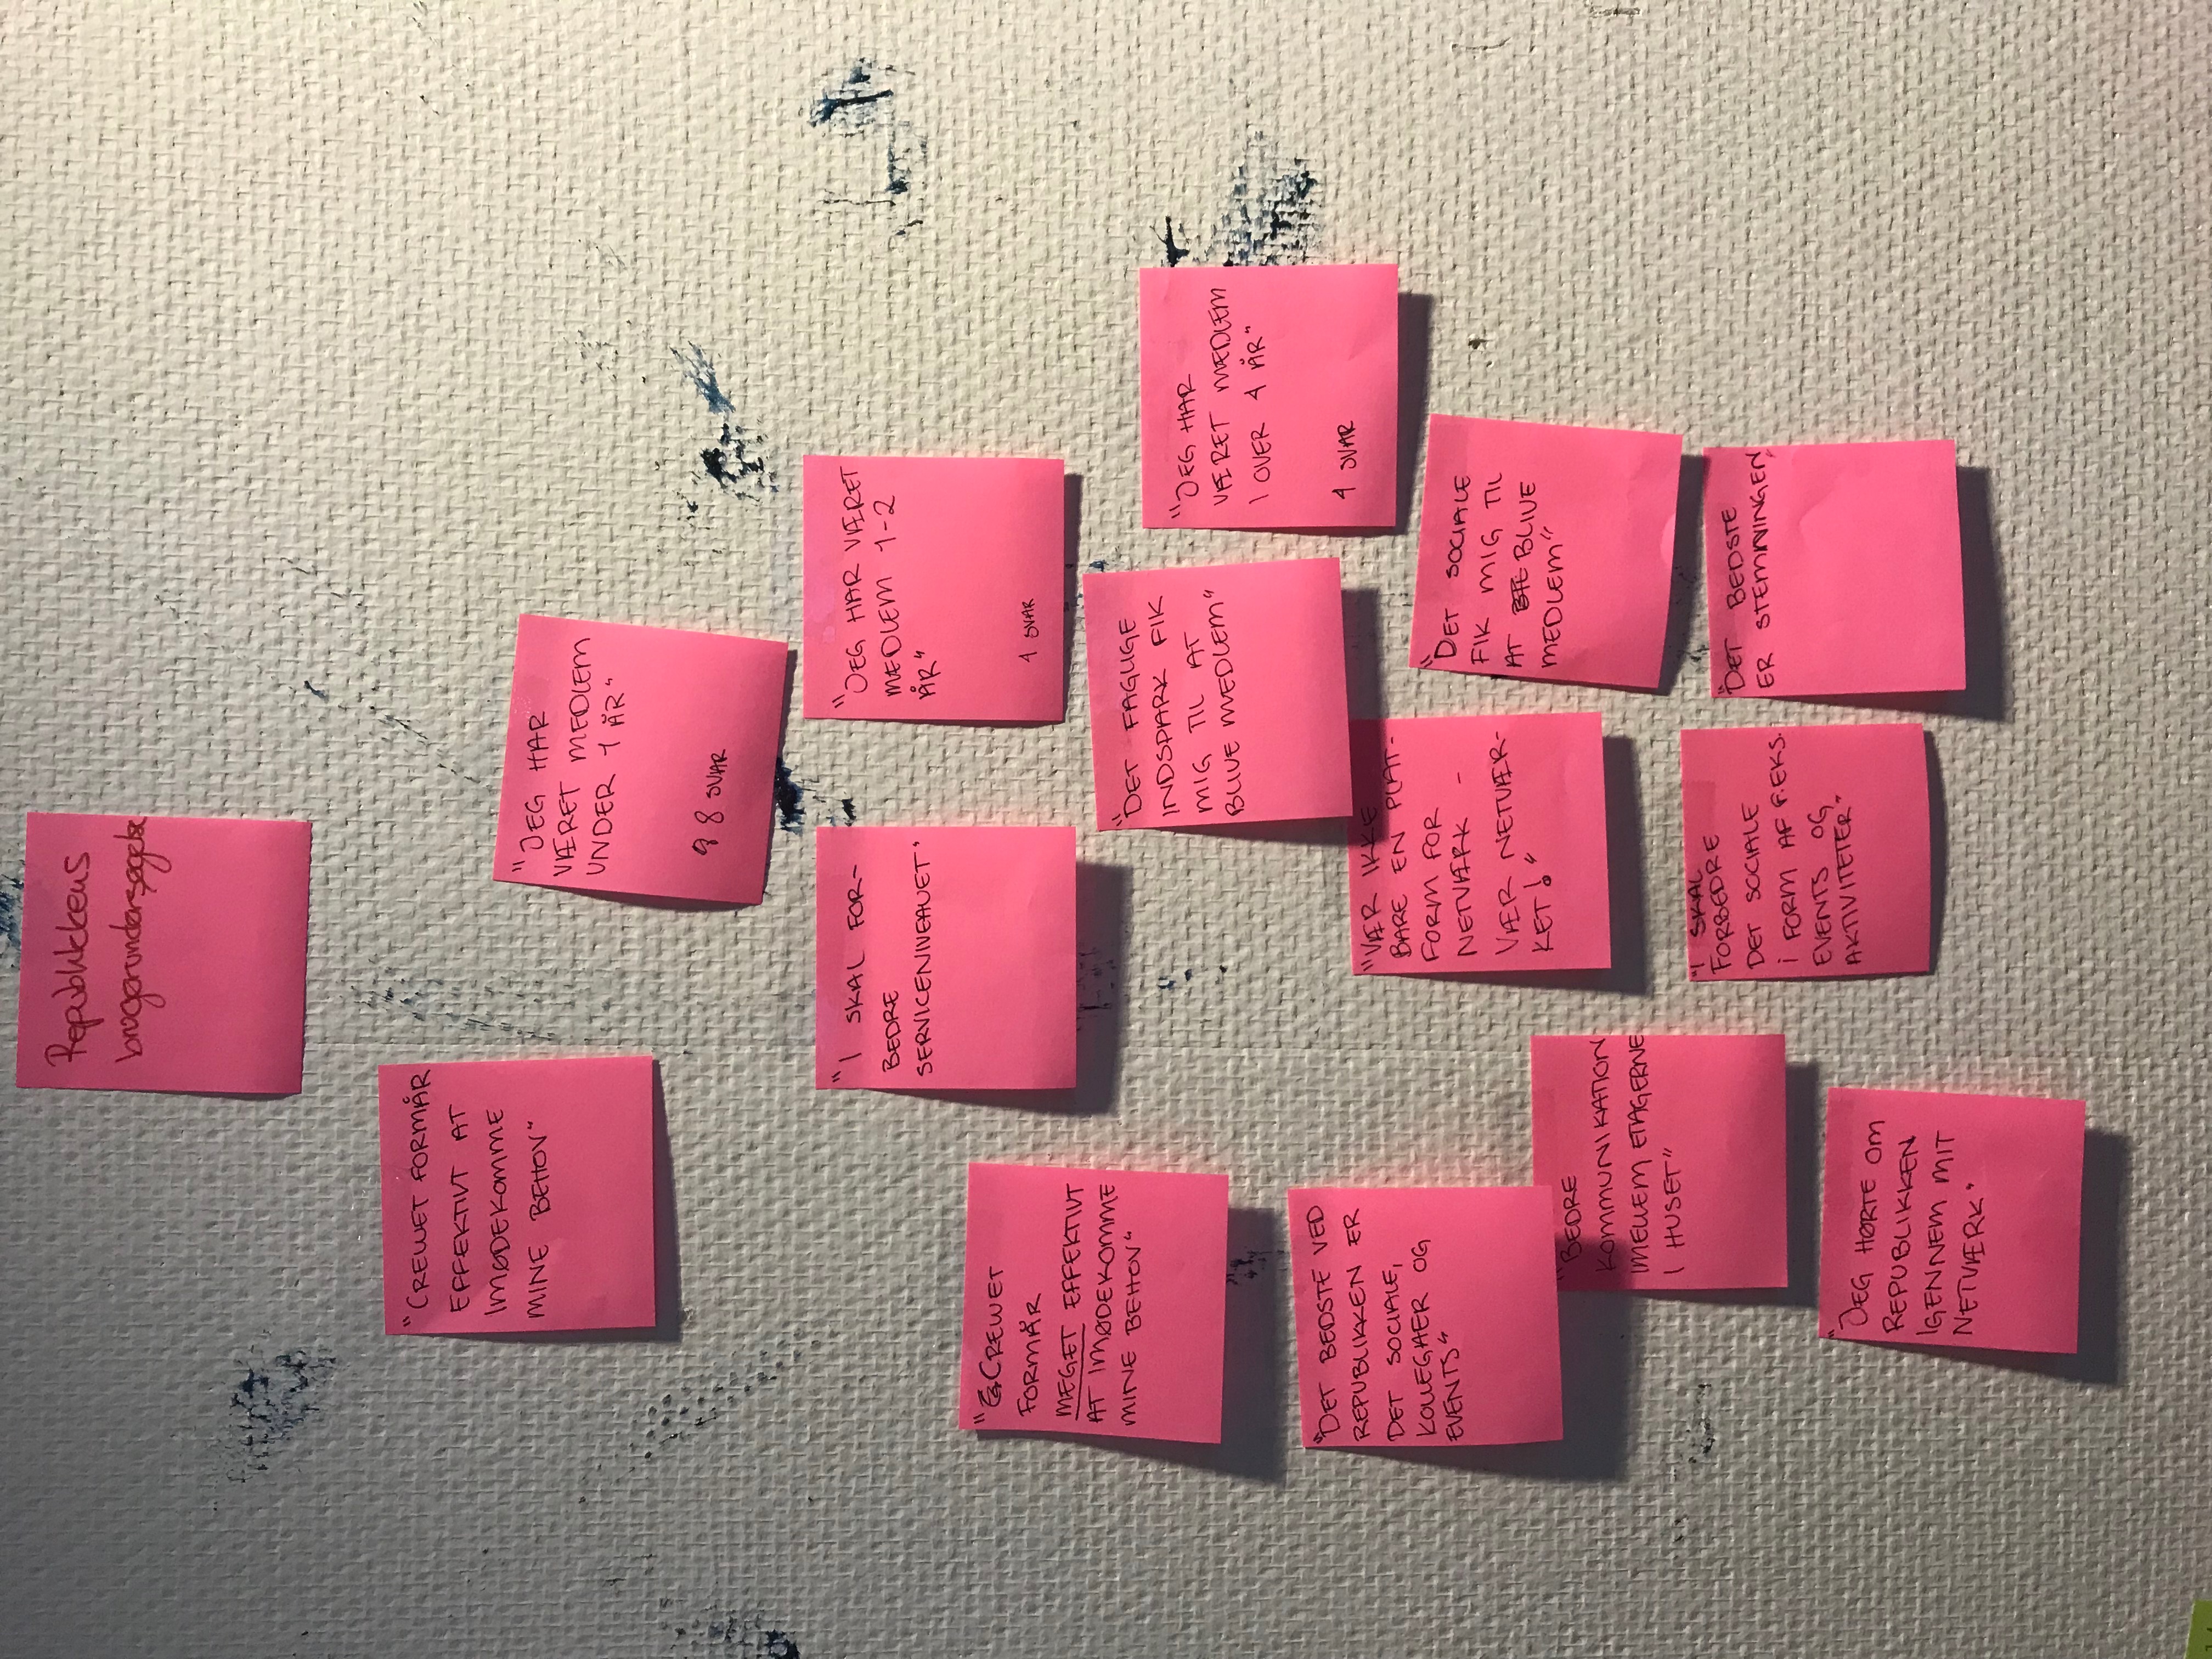 Republikkens
brugerundersøgelse
"CREWET FORMÅR
EFFEKTIVT AT
IMØDEKOMME
MINE BEHOV"
"JEG HAR
VÆRET MEDLEM
UNDER 1 ÅR"
8 SVAR
"I SKAL FOR-
BEDRE
SERVICENIVEAUET"
"JEG HAR VÆRET
MEDLEM 1-2
ÅR"
4 SVAR
"CREWET
FORMÅR
MEGET EFFEKTIVT
AT IMØDEKOMME
MINE BEHOV"
"DET FAGLIGE
INDSPARK FIK
MIG TIL AT
BLIVE MEDLEM"
"JEG HAR
VÆRET MEDLEM
I OVER 4 ÅR"
4 SVAR
"DET BEDSTE VED
REPUBLIKKEN ER
DET SOCIALE,
KOLLEGAER OG
EVENTS"
"VÆR IKKE
BARE EN PLAT-
FORM FOR
NETVÆRK -
VÆR NETVÆR-
KET!"
"DET SOCIALE
FIK MIG TIL
AT BLIVE
MEDLEM"
"BEDRE
KOMMUNIKATION
IMELLEM ETAGERNE
I HUSET"
"I SKAL
FORBEDRE
DET SOCIALE
I FORM AF F.EKS.
EVENTS OG
AKTIVITETER"
"DET BEDSTE
ER STEMNINGEN"
"JEG HØRTE OM
REPUBLIKKEN
IGENNEM MIT
NETVÆRK"